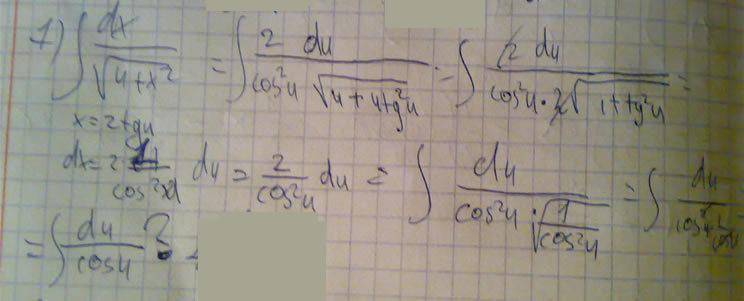 1) ∫ dx/√(4+x²) = ∫ 2 du/(cos²u √(4+4tg²u)) = ∫ 2 du/(cos²u · 2√(1+tg²u)) =
x = 2tgu
dx = 2 du = 2/cos²u du = ∫ du/(cos²u · √(1/cos²u)) = ∫ du
= ∫ du/cosu ?